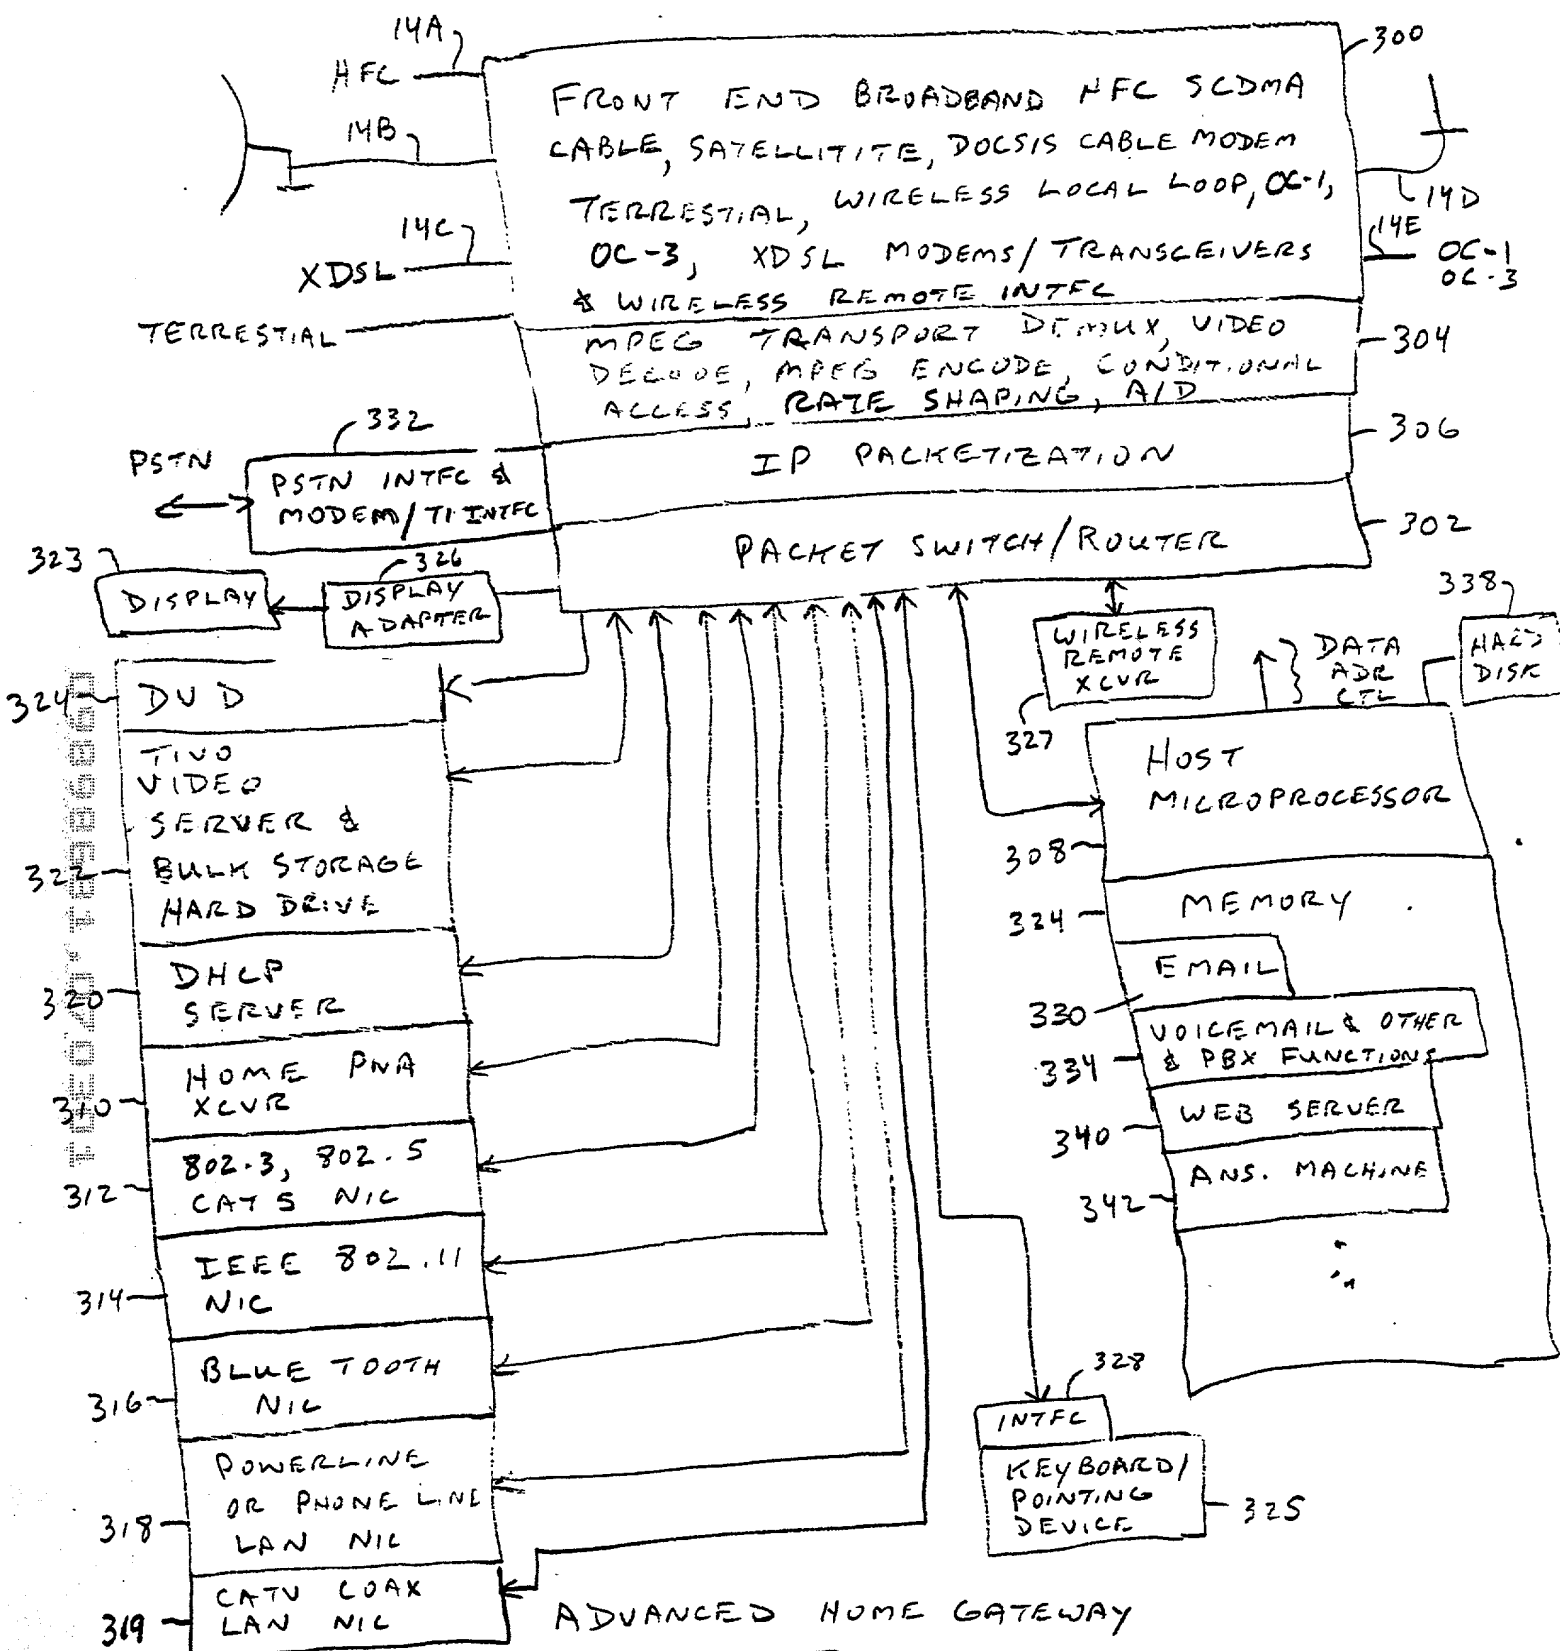 14A
HFC
300
FRONT END BROADBAND HFC SCDMA
CABLE, SATELLITITE, DOCSIS CABLE MODEM
TERRESTIAL, WIRELESS LOCAL LOOP, OC-1,
OC-3, XDSL MODEMS/TRANSCEIVERS
& WIRELESS REMOTE INTFC
14B
14C
XDSL
TERRESTIAL
14D
14E
OC-1
OC-3
MPEG TRANSPORT DEMUX, VIDEO
DECODE, MPEG ENCODE, CONDITIONAL
ACCESS, RATE SHAPING, A/D
304
332
IP PACKETIZATION
306
PSTN
PSTN INTFC &
MODEM/T1 INTFC
PACKET SWITCH/ROUTER
302
323
DISPLAY
326
DISPLAY
ADAPTER
WIRELESS
REMOTE
XCVR
327
DATA
ADR
CTL
338
HARD
DISK
324
DVD
TIVO
VIDEO
SERVER &
BULK STORAGE
HARD DRIVE
322
DHCP
SERVER
320
HOME PNA
XCVR
310
802.3, 802.5
CAT 5 NIC
312
IEEE 802.11
NIC
314
BLUE TOOTH
NIC
316
POWERLINE
OR PHONE LINE
LAN NIC
318
CATV COAX
LAN NIC
319
HOST
MICROPROCESSOR
308
MEMORY
324
EMAIL
330
VOICEMAIL & OTHER
& PBX FUNCTIONS
334
WEB SERVER
340
ANS. MACHINE
342
328
INTFC
KEYBOARD/
POINTING
DEVICE
325
ADVANCED HOME GATEWAY